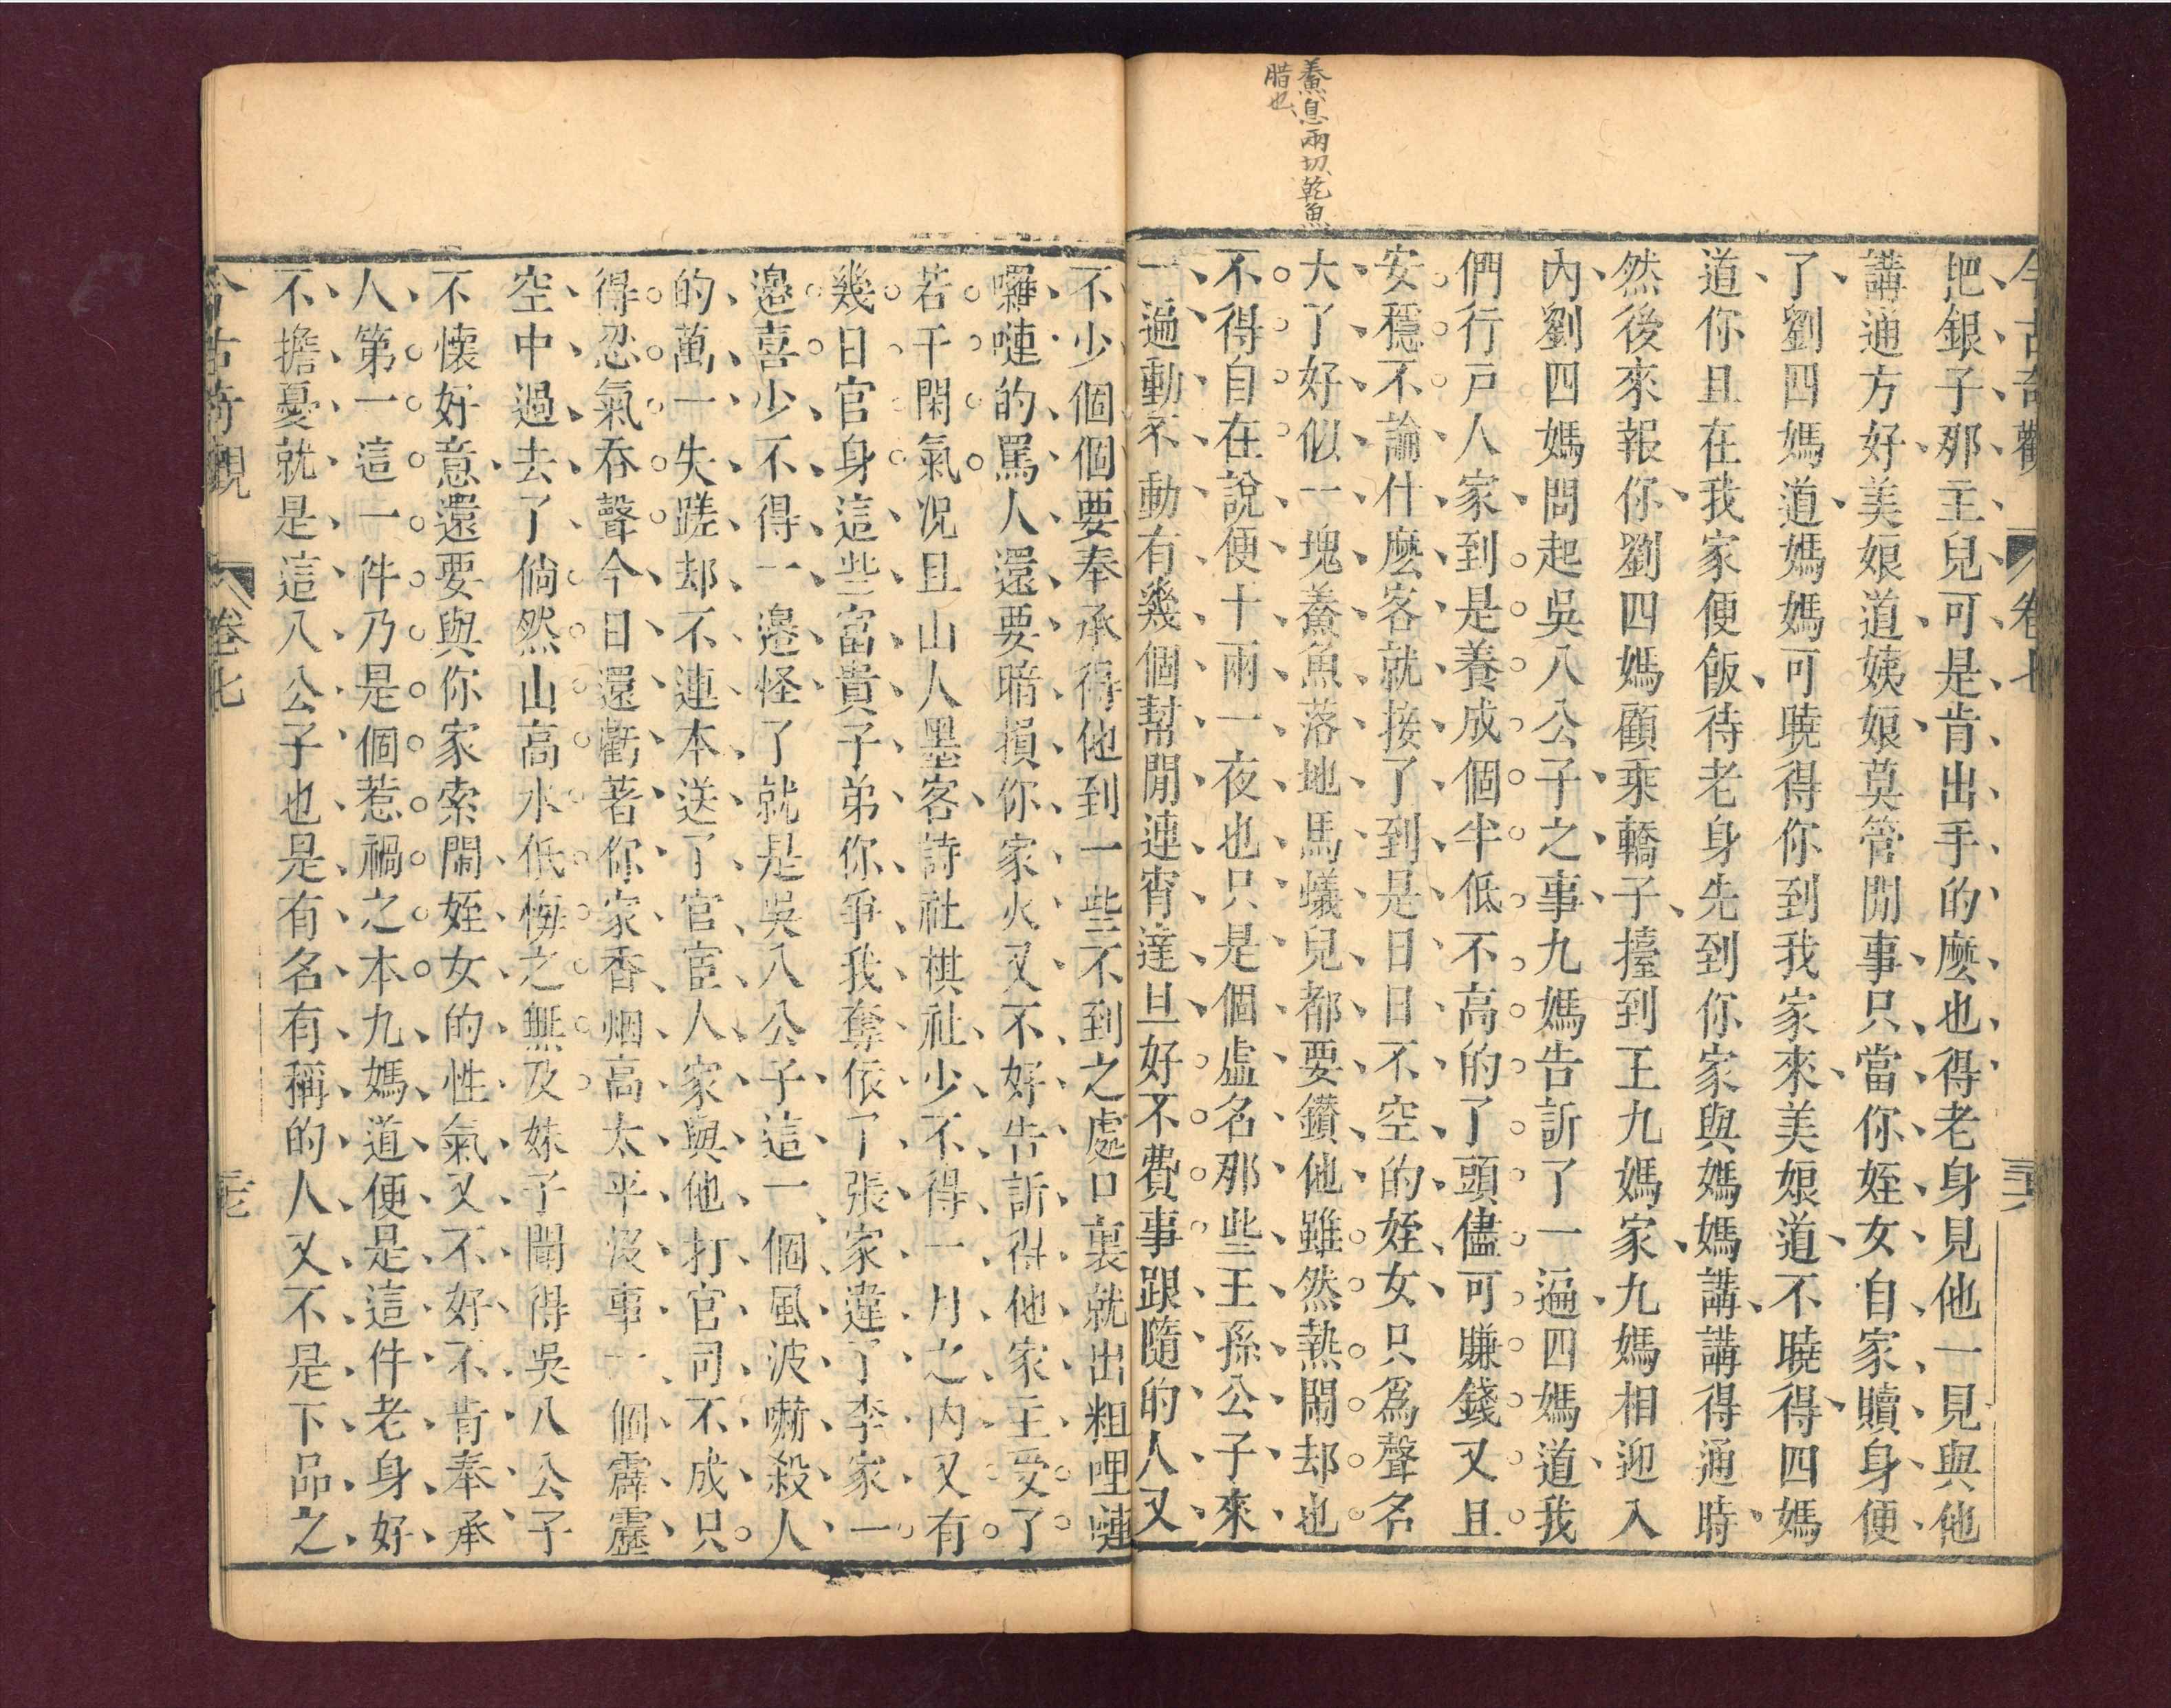 鯗息兩切乾魚
腊也
今古奇觀 卷七 三六
把銀子那主兒可是肯出手的麽也得老身見他一見與他
講通方好美娘道姨娘莫管閒事只當你姪女自家贖身便
了劉四媽道媽媽可曉得你到我家來美娘道不曉得四媽
道你且在我家便飯待老身先到你家與媽媽講講得通時
然後來報你劉四媽顧乘轎子擡到王九媽家九媽相迎入
內劉四媽問起吳八公子之事九媽告訴了一遍四媽道我
們行戶人家到是養成個半低不高的了頭儘可賺錢又且
安穩不論什麽客就接了到是日日不空的姪女只爲聲名
大了好似一塊鯗魚落地馬蟻兒都要鑽他雖然熱鬧却也
不得自在說便十兩一夜也只是個虛名那些王孫公子來
一遍動不動有幾個幫閒連宵達旦好不費事跟隨的人又
不少個個要奉承得他到一些不到之處口裏就出粗哩嗹
囉嗹的罵人還要暗損你家火又不好告訴得他家主受了
若干閑氣况且山人墨客詩社棋社少不得一月之內又有
幾日官身這些富貴子弟你爭我奪依了張家違了李家一
邉喜少不得一邉怪了就是吳八公子這一個風波嚇殺人
的萬一失蹉却不連本送了官宦人家與他打官司不成只
得忍氣吞聲今日還虧著你家香烟高太平沒事一個霹靂
空中過去了倘然山高水低悔之無及妹子聞得吳八公子
不懷好意還要與你家索鬧姪女的性氣又不好不肯奉承
人第一這一件乃是個惹禍之本九媽道便是這件老身好
不擔憂就是這八公子也是有名有稱的人又不是下品之
今古奇觀 卷七 三七